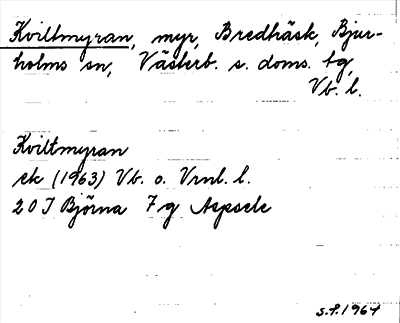 Kviltmyran, myr, Bredträsk, Bjur-
holms sn, Västerb. s. doms. tg,
Vb. l.
Kviltmyran
ek (1963) Vb. o. Vrnl. l.
20 J Björna 7 g Aspsele
s.f. 1964